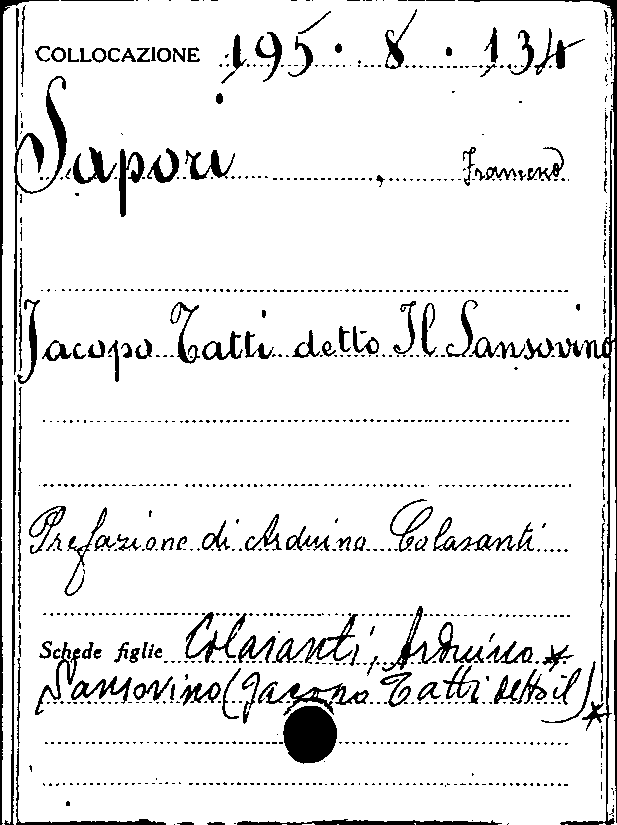 COLLOCAZIONE 195 · 8 · 134
Sapori, Francesco
Jacopo Tatti detto Il Sansovino
Prefazione di Arduino Colasanti
Schede figlie Colasanti, Arduino *
Sansovino (Jacopo Tatti detto il) *